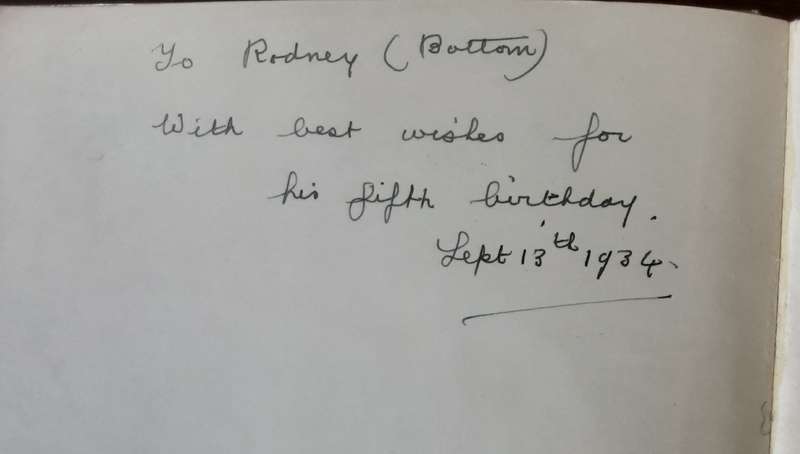 To Rodney (Bottom)
With best wishes for
his fifth birthday.
Sept 13th 1934